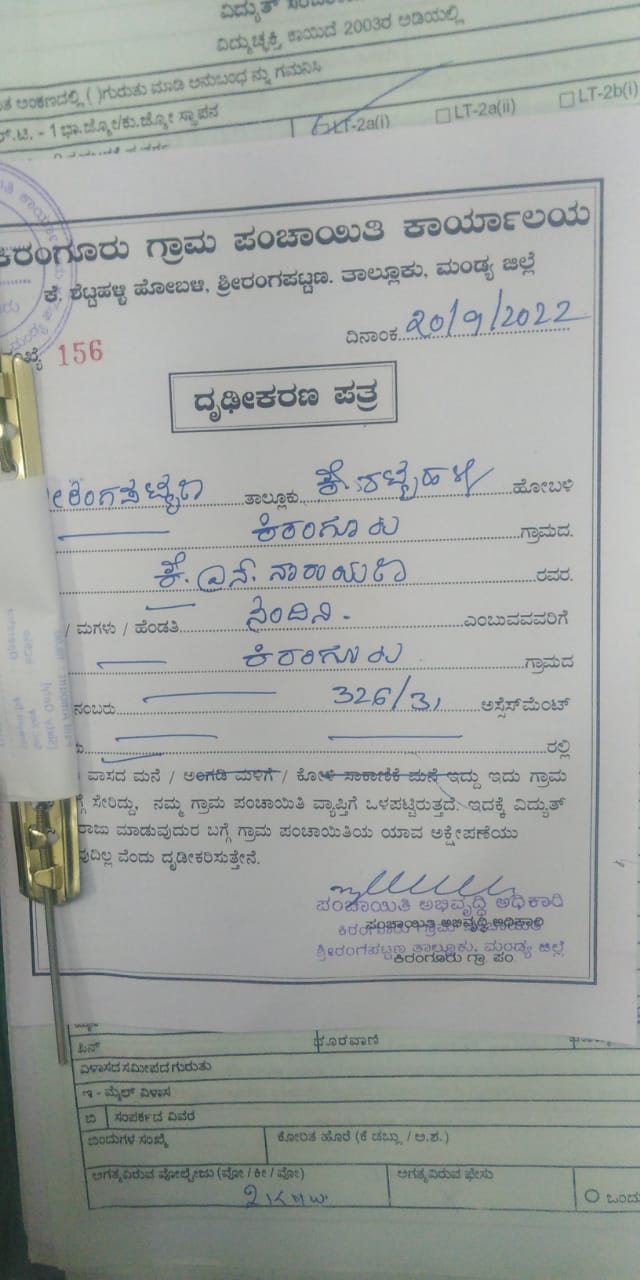 ವಿದ್ಯುತ್
ವಿದ್ಯುಚ್ಛಕ್ತಿ ಕಾಯಿದೆ 2003ರ ಅಡಿಯಲ್ಲಿ
ಅಂಕಣದಲ್ಲಿ ( )ಗುರುತು ಮಾಡಿ ಅನುಬಂಧ ನ್ನು ಗಮನಿಸಿ
- 1 ಭಾ.ಜ್ಯೋ/ಕು.ಜ್ಯೋ ಸ್ಥಾಪನ LT-2a(i) LT-2a(ii) LT-2b(i)
ಕಿರಂಗೂರು ಗ್ರಾಮ ಪಂಚಾಯಿತಿ ಕಾರ್ಯಾಲಯ
ಕೆ. ಶೆಟ್ಟಹಳ್ಳಿ ಹೋಬಳಿ, ಶ್ರೀರಂಗಪಟ್ಟಣ. ತಾಲ್ಲೂಕು, ಮಂಡ್ಯ ಜಿಲ್ಲೆ
ದಿನಾಂಕ 20/9/2022
156
ದೃಢೀಕರಣ ಪತ್ರ
ತಾಲ್ಲೂಕು ಕೆ. ಶೆಟ್ಟಹಳ್ಳಿ ಹೋಬಳಿ
ಕಿರಂಗೂರು ಗ್ರಾಮದ.
ಕೆ. ಎನ್. ನಾರಾಯಣ ರವರ.
/ ಮಗಳು / ಹೆಂಡತಿ ನಂದಿನಿ. ಎಂಬುವವವರಿಗೆ
ಕಿರಂಗೂರು ಗ್ರಾಮದ
ನಂಬರು 326/31 ಅಸ್ಸೆಸ್‌ಮೆಂಟ್
ರಲ್ಲಿ
ವಾಸದ ಮನೆ / ಅಂಗಡಿ ಮಳಿಗೆ / ಕೋಳಿ ಸಾಕಾಣಿಕೆ ಮನೆ ಇದ್ದು ಇದು ಗ್ರಾಮ
ಸೇರಿದ್ದು, ನಮ್ಮ ಗ್ರಾಮ ಪಂಚಾಯಿತಿ ವ್ಯಾಪ್ತಿಗೆ ಒಳಪಟ್ಟಿರುತ್ತದೆ. ಇದಕ್ಕೆ ವಿದ್ಯುತ್
ಮಾಡುವುದುರ ಬಗ್ಗೆ ಗ್ರಾಮ ಪಂಚಾಯಿತಿಯ ಯಾವ ಅಕ್ಷೇಪಣೆಯು
ವೆಂದು ದೃಡೀಕರಿಸುತ್ತೇನೆ.
ಪಂಚಾಯಿತಿ ಅಭಿವೃದ್ಧಿ ಅಧಿಕಾರಿ
ಪಂಚಾಯಿತಿ ಅಭಿವೃದ್ಧಿ ಅಧಿಕಾರಿ
ಕಿರಂಗೂರು ಗ್ರಾಮ ಪಂಚಾಯಿತಿ
ಶ್ರೀರಂಗಪಟ್ಟಣ ತಾಲ್ಲೂಕು, ಮಂಡ್ಯ ಜಿಲ್ಲೆ
ಕಿರಂಗೂರು ಗ್ರಾ. ಪಂ.
ಪಿನ್ ದೂರವಾಣಿ
ವಿಳಾಸದ ಸಮೀಪದ ಗುರುತು
ಇ - ಮೈಲ್ ವಿಳಾಸ
ಬಿ ಸಂಪರ್ಕದ ವಿವರ
ಬಿಂದುಗಳ ಸಂಖ್ಯೆ ಕೋರಿತ ಹೊರೆ (ಕೆ ಡಬ್ಲು / ಅ.ಶ.)
ಅಗತ್ಯವಿರುವ ವೋಲ್ಟೇಜು (ವೋ / ಕೀ / ವೋ) ಅಗತ್ಯವಿರುವ ಫೇಸು